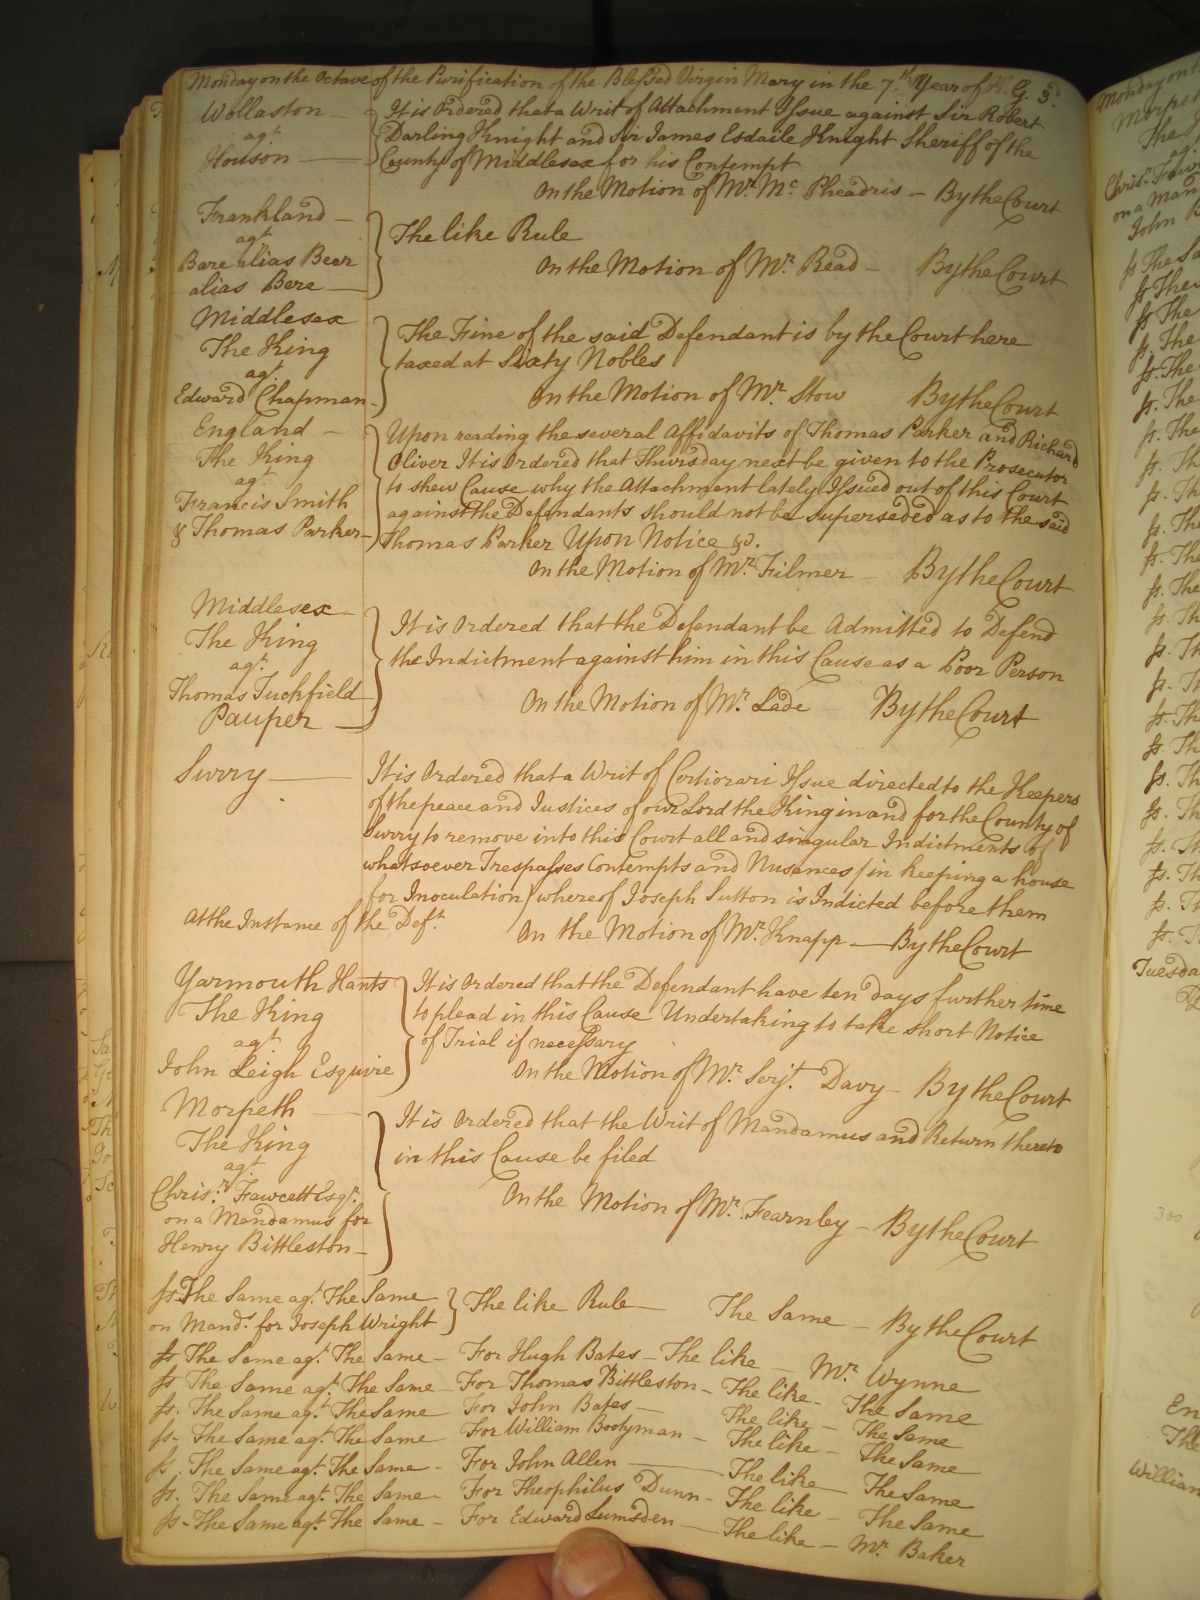 Monday on the Octave of the Purification of the Blessed Virgin Mary in the 7.th Year of K. G. 3.d
Wollaston
agt
Houson
It is Ordered that a Writ of Attachment Issue against Sir Robert
Darling Knight and Sir James Esdaile Knight Sheriff of the
County of Middlesex for his Contempt
On the Motion of Mr. Mc. Pheadris By the Court
Frankland
agt
Bare alias Beer
alias Bere
The like Rule
On the Motion of Mr. Read By the Court
Middlesex
The King
agt.
Edward Chapman
The Fine of the said Defendant is by the Court here
taxed at Sixty Nobles
On the Motion of Mr. Stow By the Court
England
The King
agt.
Francis Smith
& Thomas Parker
Upon reading the several Affidavits of Thomas Parker and Richard
Oliver It is Ordered that Thursday next be given to the Prosecutor
to shew Cause why the Attachment lately Issued out of this Court
against the Defendants should not be Superseded as to the said
Thomas Parker Upon Notice &c.
On the Motion of Mr. Filmer By the Court
Middlesex
The King
agt.
Thomas Tuckfield
Pauper
It is Ordered that the Defendant be Admitted to Defend
the Indictment against him in this Cause as a Poor Person
On the Motion of Mr. Lade By the Court
Surry
It is Ordered that a Writ of Certiorari Issue directed to the Keepers
of the peace and Justices of our Lord the King in and for the County of
Surry to remove into this Court all and singular Indictments of
whatsoever Trespasses Contempts and Nusances (in keeping a house
for Inoculation) whereof Joseph Sutton is Indicted before them
At the Instance of the Deft.
On the Motion of Mr. Knapp By the Court
Yarmouth Hants
The King
agt.
John Leigh Esquire
It is Ordered that the Defendant have ten days further time
to plead in this Cause Undertaking to take short Notice
of Trial if necessary
On the Motion of Mr. Serjt. Davy By the Court
Morpeth
The King
agt
Chris.r Fawcett Esqr.
on a Mandamus for
Henry Bittleston
It is Ordered that the Writ of Mandamus and Return thereto
in this Cause be filed
On the Motion of Mr. Fearnley By the Court
ss The Same agt. The Same
on Mand.s for Joseph Wright
The like Rule The Same By the Court
ss The Same agt. The Same For Hugh Bates The like Mr. Wynne
ss The Same agt. The Same For Thomas Bittleston The like The Same
ss. The Same agt. The Same For John Bates The like The Same
ss. The Same agt. The Same For William Bootyman The like The Same
ss. The Same agt. The Same For John Allen The like The Same
ss. The Same agt. The Same For Theophilus Dunn The like The Same
ss. The Same agt. The Same For Edward Lumsden The like Mr. Baker